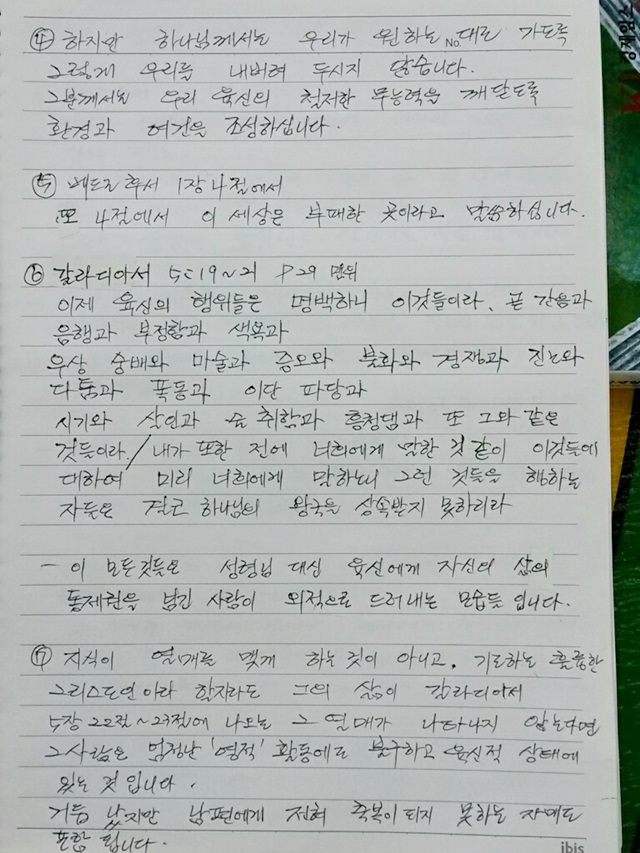 ④ 하지만 하나님께서는 우리가 원하는 No. 대로 가도록
그렇게 우리를 내버려 두시지 않습니다.
그분께서는 우리 육신의 철저한 무능력을 깨닫도록
환경과 여건을 조성하십니다.
⑤ 베드로후서 1장 4절에서
또 4절에서 이 세상은 부패한 곳이라고 말씀하십니다.
⑥ 갈라디아서 5:19~21 P29
이제 육신의 행위들은 명백하니 이것들이라. 곧 간음과
음행과 부정함과 색욕과
우상 숭배와 마술과 증오와 불화와 경쟁과 진노와
다툼과 폭동과 이단 파당과
시기와 살인과 술 취함과 흥청댐과 또 그와 같은
것들이라./내가 또한 전에 너희에게 말한 것 같이 이것들에
대하여 미리 너희에게 말하노니 그런 것들을 행하는
자들은 결코 하나님의 왕국을 상속받지 못하리라
- 이 모든것들은 성령님 대신 육신에게 자신의 삶의
통제권을 넘긴 사람이 외적으로 드러내는 모습들 입니다.
⑦ 지식이 열매를 맺게 하는것이 아니고. 기도하는 훌륭한
그리스도인이라 할지라도 그의 삶이 갈라디아서
5장 22절~23절에 나오는 그 열매가 나타나지 않는다면
그사람은 엄청난 '영적' 활동에도 불구하고 육신적 상태에
있는 것 입니다.
거듭 났지만 남편에게 전혀 축복이 되지 못하는 자매도
포함 됩니다.
ibis